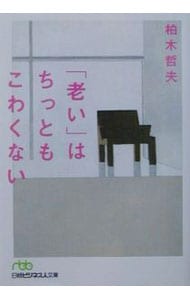 柏木哲夫
「老い」は
ちっとも
こわくない
nbb
日経ビジネス人文庫